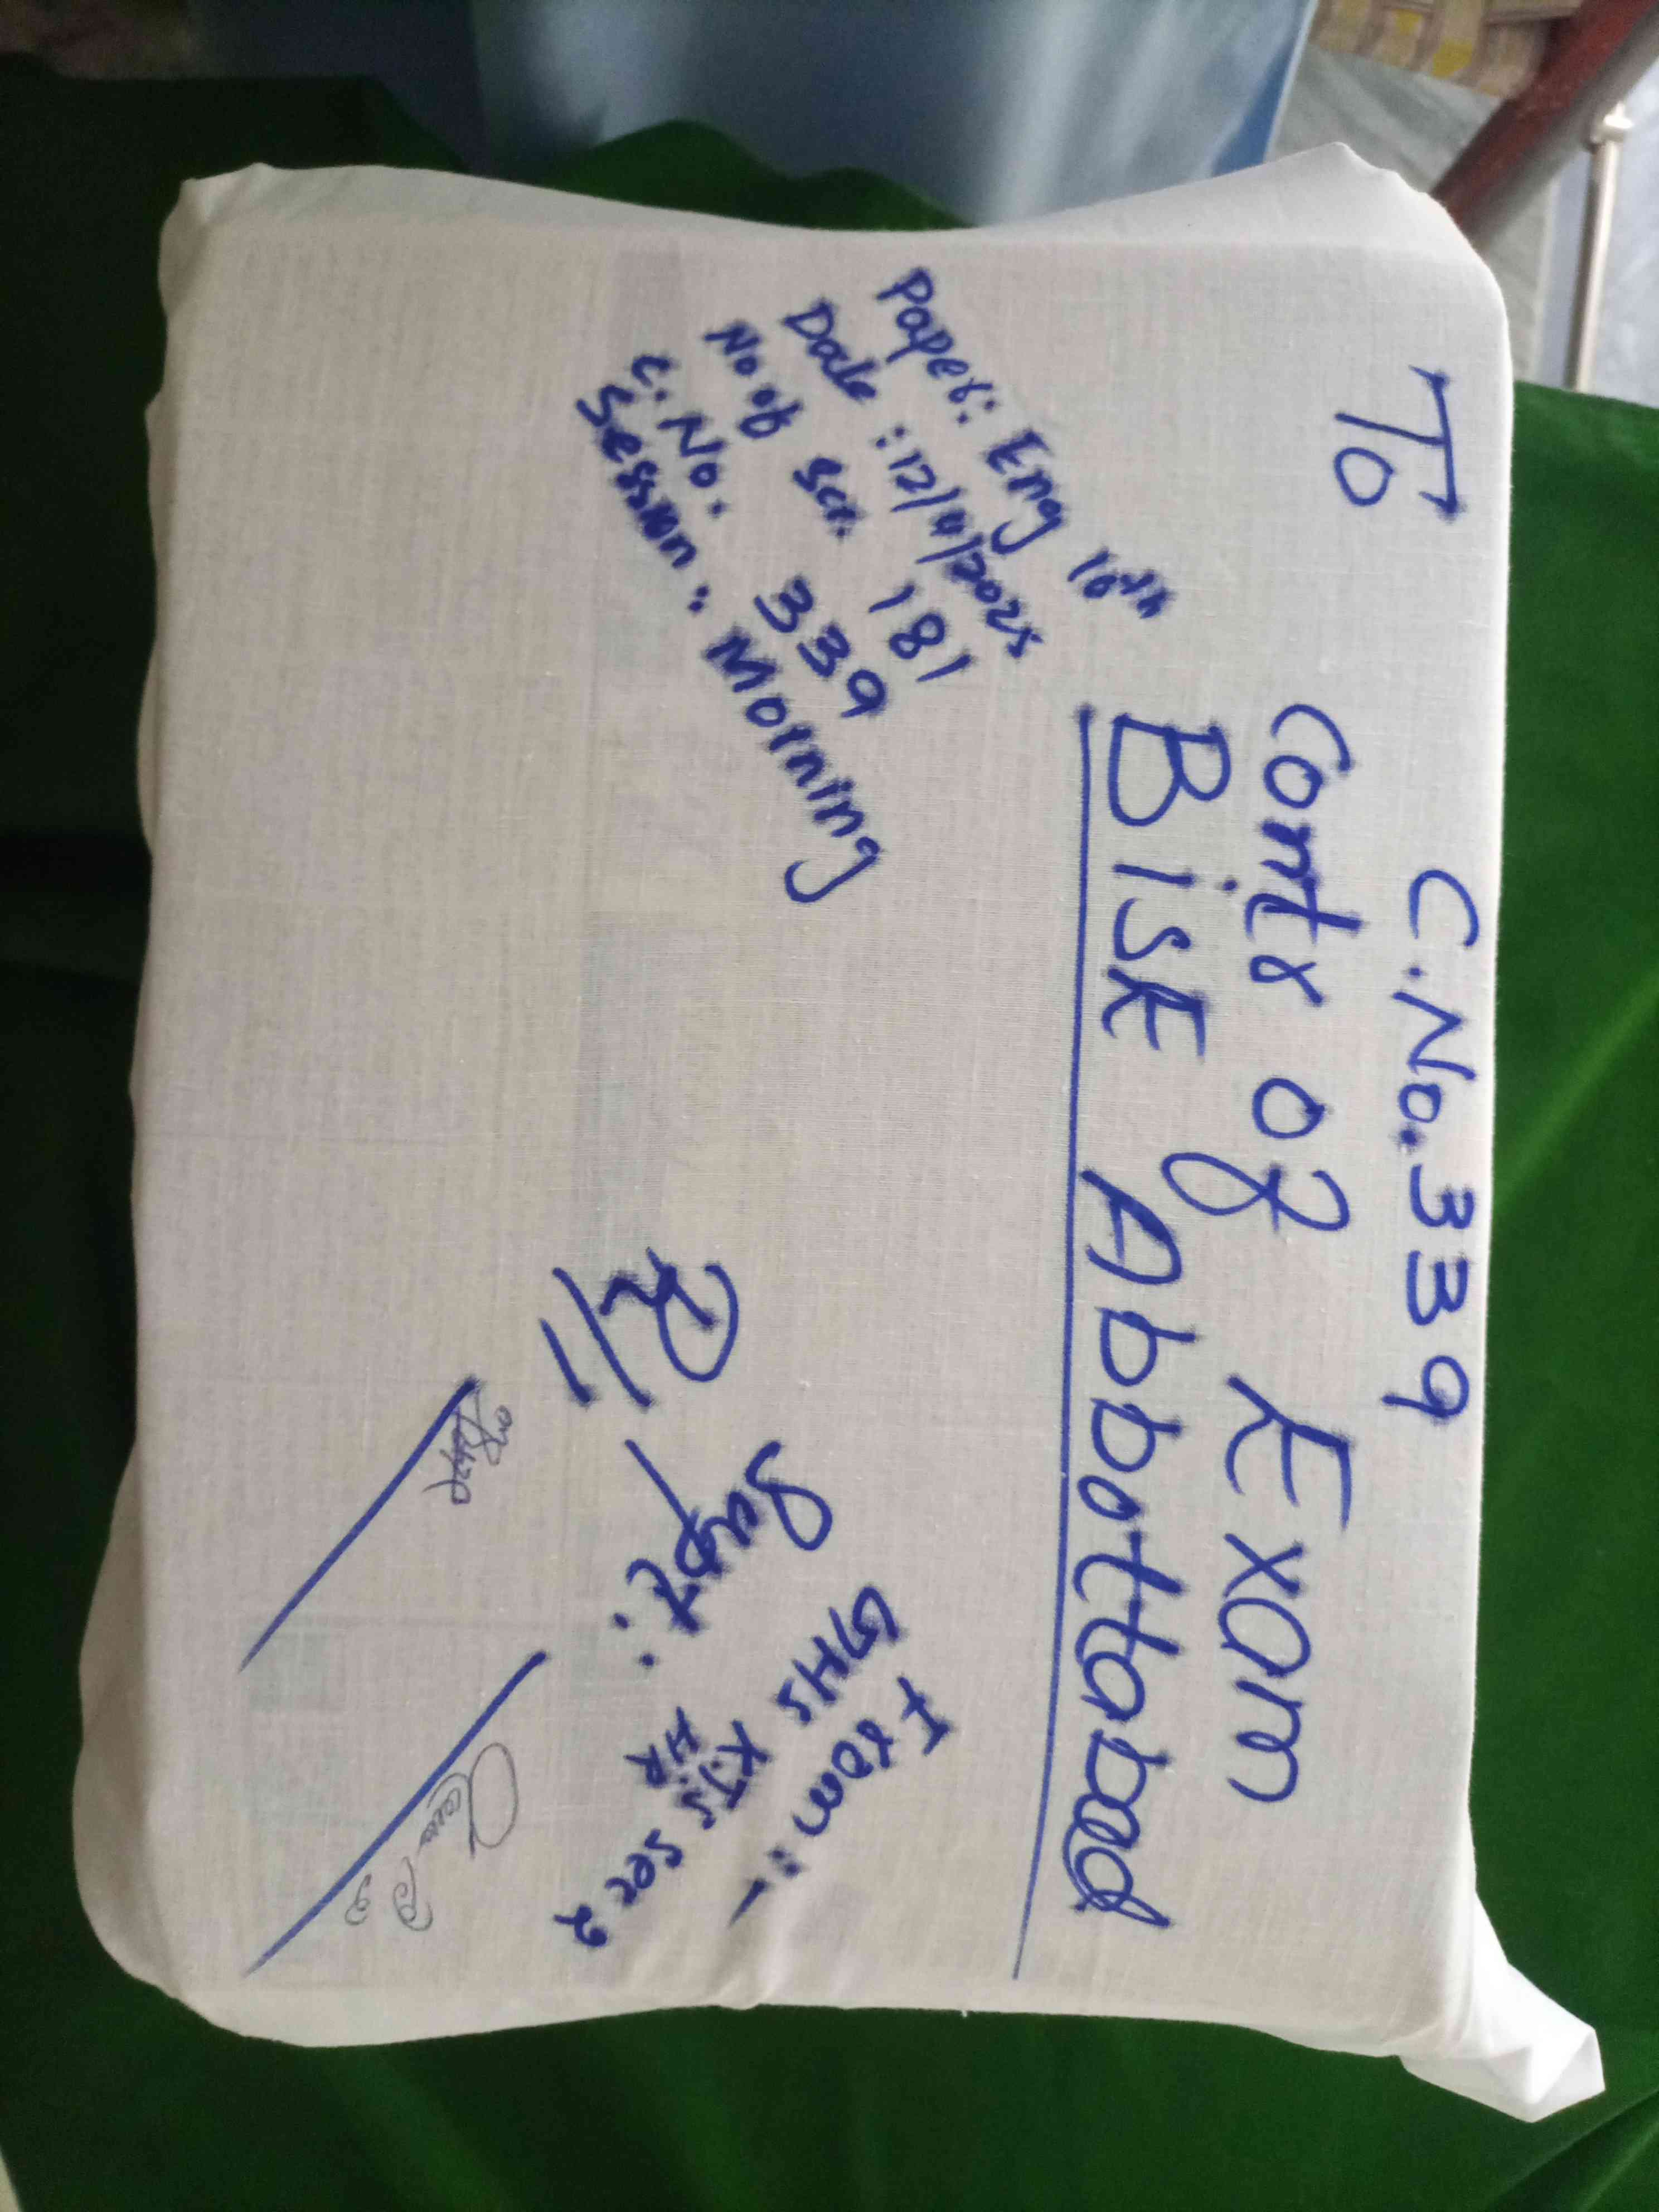 C.No.339
To
Contr of Exam
BiSE Abbottabad
Paper: Eng 10th
Date :12/4/2025
No of Scr. 181
C. No. 339
Session: Morning
From:-
GHS K.T.S Sec 2
HR
Supt:
R//